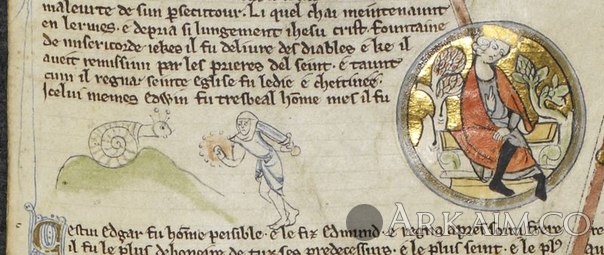 maleurte de sun persecutour. Li quel chai meintenaunt
en lermes. e depria si lungement ihesu crist fountaine
de misericorde iekes il fu delivre des diables. e ke il
aueit remissiun par les prieres del seint. e taunt
cum il regna seinte eglise fu ledie e chettiuee.
Icelui memes edwin fu tresbeal home mes il fu
Cestui edgar fu home peisible. e le fiz edmund. e regna apres soun frere
il fu le plus debonere de tuz ses predecessurs. e le plus seint. e le plus
ARKAIM.CO